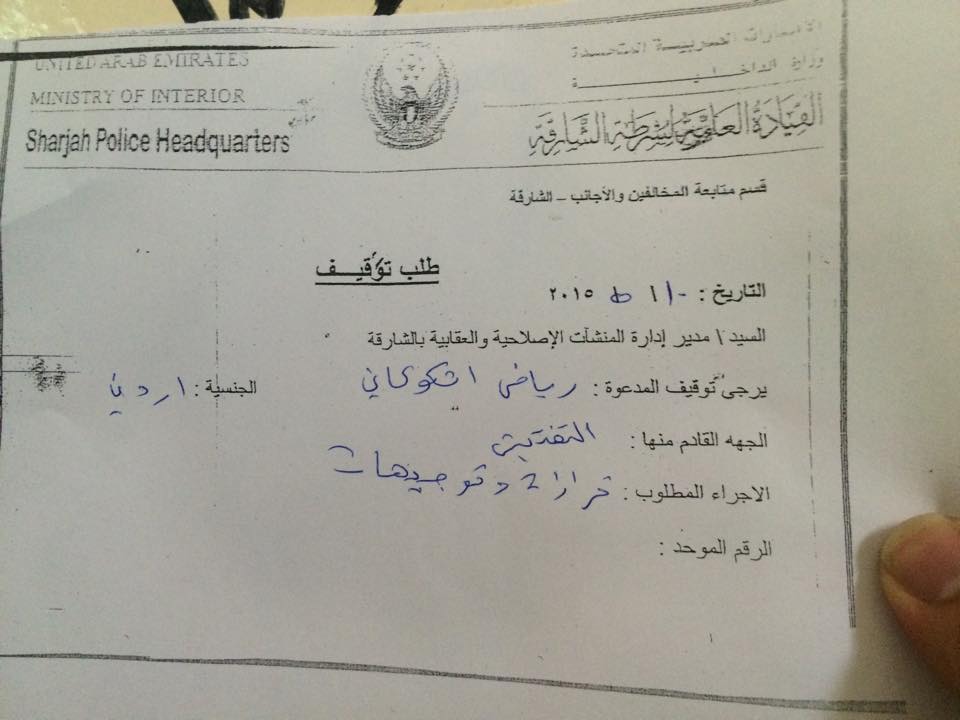 UNITED ARAB EMIRATES
MINISTRY OF INTERIOR
Sharjah Police Headquarters
الامارات العربية المتحدة
وزارة الداخلية
القيادة العامة لشرطة الشارقة
قسم متابعة المخالفين والأجانب – الشارقة
طلب توقيف
التاريخ : ٢٠١٥
السيد \ مدير إدارة المنشآت الإصلاحية والعقابية بالشارقة
يرجى توقيف المدعوة : رياض الجنسية : اردني
الجهه القادم منها : التفتيش
الاجراء المطلوب :
الرقم الموحد :